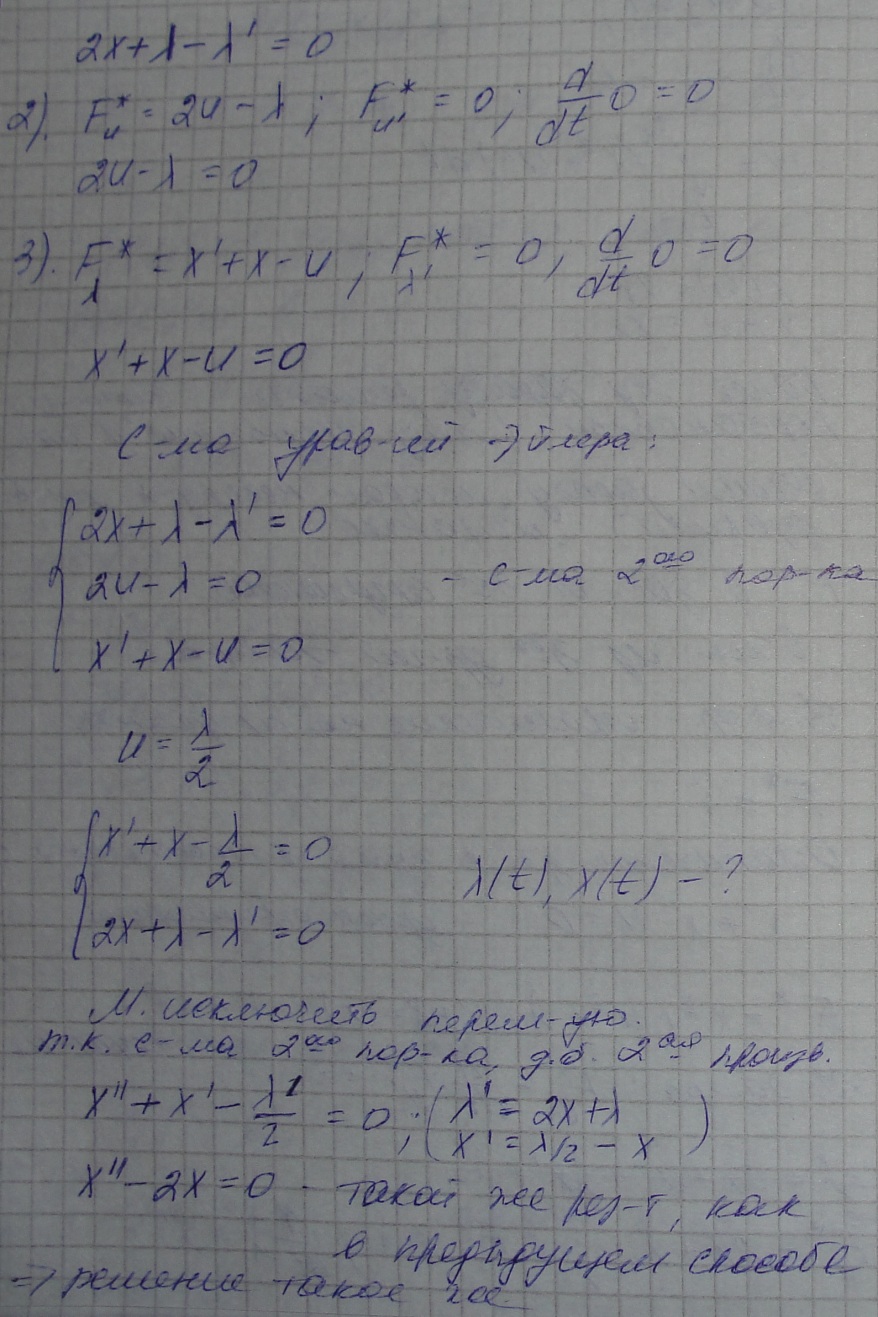 2x+λ-λ' = 0
2). F*ᵤ = 2u - λ ; F*ᵤ' = 0 ; d/dt 0 = 0
2u-λ = 0
3). F*λ = x'+x-u ; F*λ' = 0, d/dt 0 = 0
x'+x-u = 0
С-ма урав-ний Эйлера:
{ 2x+λ-λ' = 0
2u-λ = 0 - с-ма 2ого пор-ка
x'+x-u = 0
u = λ/2
{ x'+x-λ/2 = 0
λ(t), x(t) - ?
2x+λ-λ' = 0
М. исключить перем-ую.
т.к. с-ма 2ого пор-ка, д.б. 2ая произв.
x''+x'-λ'/2 = 0 ; ( λ' = 2x+λ
x' = λ/2 - x )
x''-2x = 0 - такой же рез-т, как
в предыдущем способе
=> решение такое же